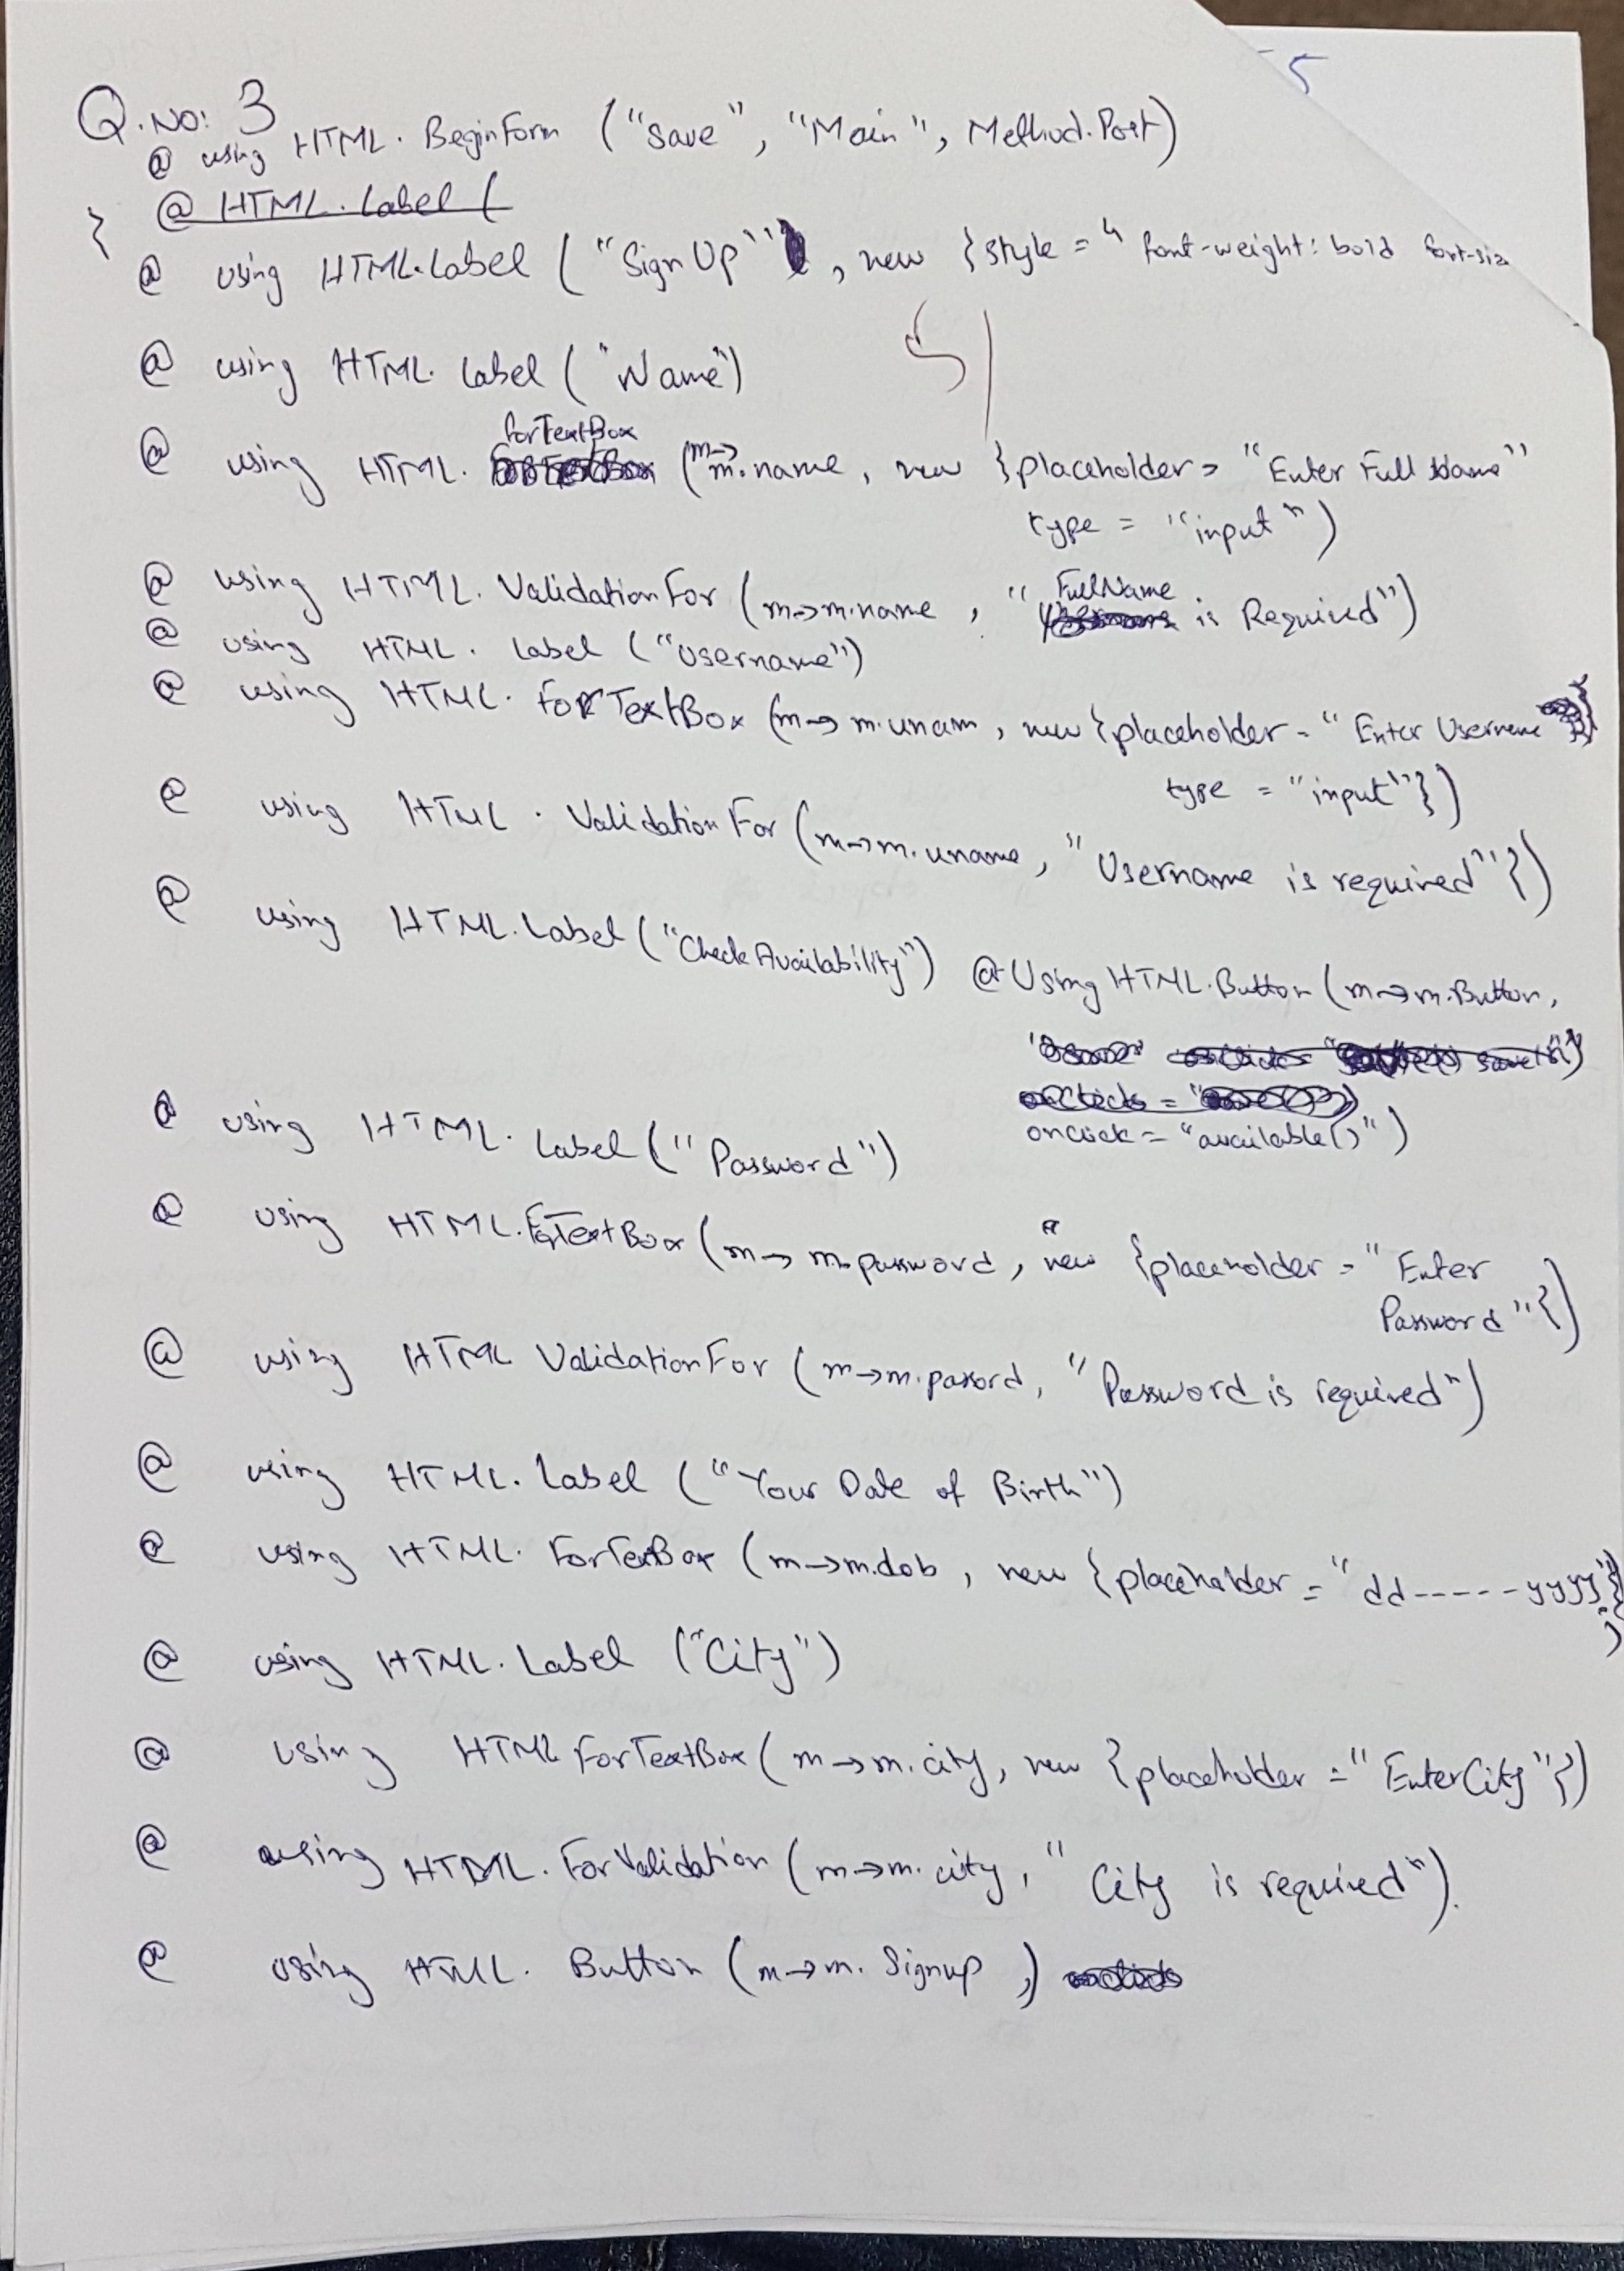 5
Q.No: 3
@ using HTML. BeginForm ("Save", "Main", Method.Post)
@ HTML. Label (
{
@ using HTML.Label ("Sign Up", new {style = " font-weight: bold font-siz
@ using HTML. Label ("Name")
5
forTextBox
@ using HTML. (m→ m.name, new {placeholder = "Enter Full Name"
type = "input")
FullName
@ using HTML. ValidationFor (m→m.name, " is Required")
@ using HTML. Label ("Username")
@ using HTML. ForTextBox (m→ m.unam, new {placeholder = "Enter Username
type = "input"})
@ using HTML. ValidationFor (m→m.uname, "Username is required"})
@ using HTML.Label ("CheckAvailability") @Using HTML.Button (m→m.Button,
onclick = "available()")
@ using HTML. Label ("Password")
@ using HTML.ForTextBox (m→ m.password, new {placeholder = "Enter
Password"})
@ using HTML ValidationFor (m→m.pasord, "Password is required")
@ using HTML. Label ("Your Date of Birth")
@ using HTML. ForTexBox (m→m.dob, new {placeholder = "dd-----yyyy"}
)
@ using HTML.Label ("City")
@ using HTML ForTextBox (m→m.city, new {placeholder = "EnterCity"})
@ using HTML. ForValidation (m→m.city, "City is required").
@ using HTML. Button (m→m. Signup,)